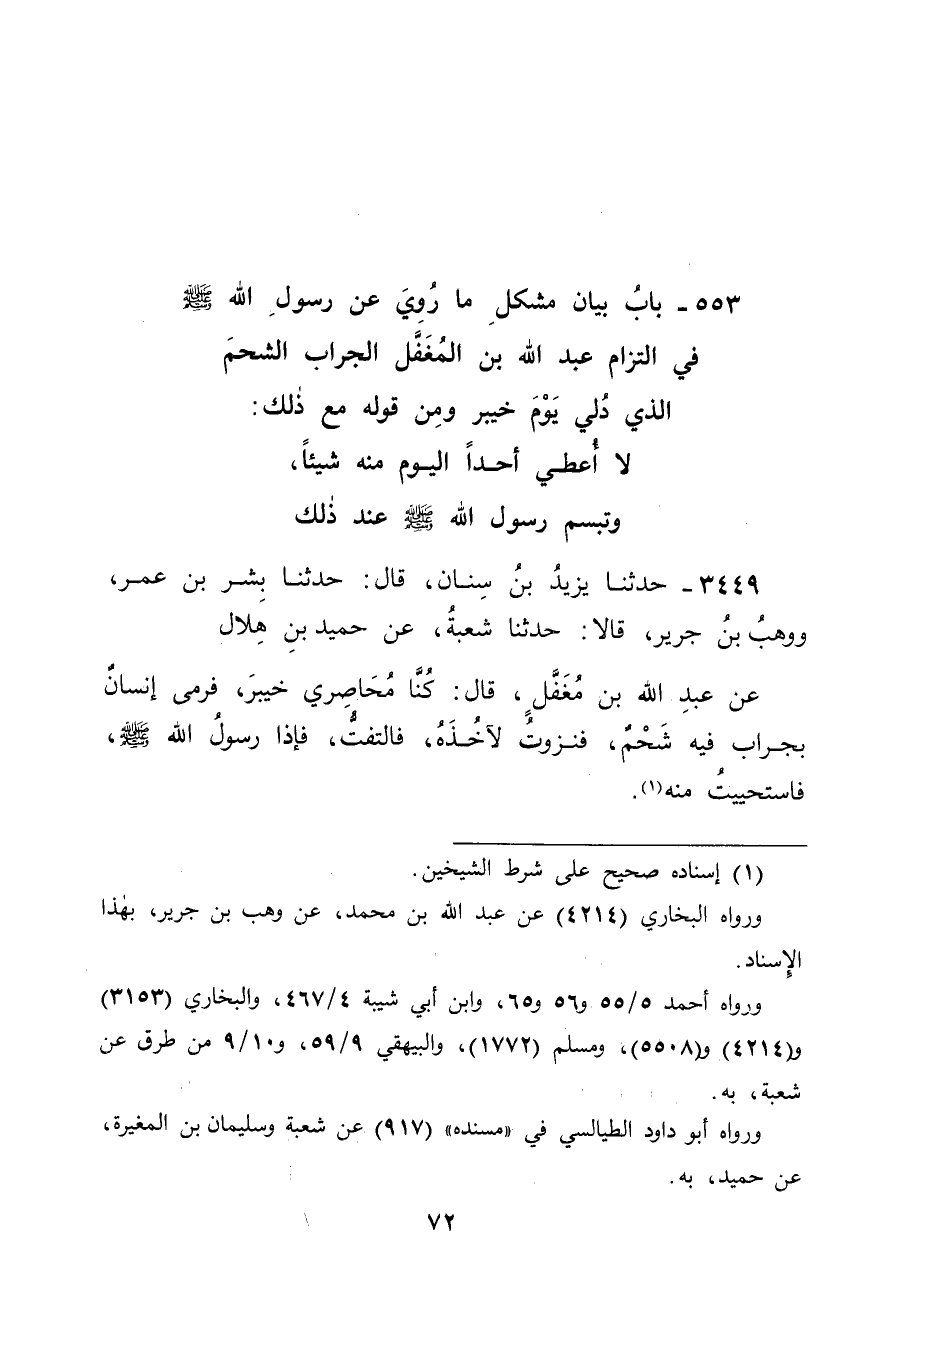 ٥٥٣ ـ بابُ بيان مشكلِ ما رُوِيَ عن رسولِ الله ﷺ
في التزام عبد الله بن المُغَفَّل الجراب الشحمَ
الذي دُلي يَوْمَ خيبر ومِن قوله مع ذٰلك:
لا أُعطـي أحـداً اليـوم منه شيئاً،
وتبسم رسول الله ﷺ عند ذٰلك
٣٤٤٩ ـ حدثنـا يزيدُ بنُ سِنـان، قال: حدثنـا بِشـر بن عمـر،
ووهبُ بنُ جرير، قالا: حدثنا شعبةُ، عن حميد بنِ هِلال
عن عبدِ الله بن مُغَفَّلٍ، قال: كُنَّا مُحَاصِري خيبرَ، فرمى إنسانٌ
بجـراب فيه شَحْمٌ، فنـزوتُ لآخُـذَهُ، فالتفتُّ، فإذا رسولُ الله ﷺ،
فاستحييتُ منه(١).
(١) إسناده صحيح على شرط الشيخين.
ورواه البخاري (٤٢١٤) عن عبد الله بن محمد، عن وهب بن جرير، بهٰذا
الإسناد.
ورواه أحمد ٥/‏٥٥ و٥٦ و٦٥، وابن أبي شيبة ٤/‏٤٦٧، والبخاري (٣١٥٣)
و(٤٢١٤) و(٥٥٠٨)، ومسلم (١٧٧٢)، والبيهقي ٩/‏٥٩، و١٠/‏٩ من طرق عن
شعبة، به.
ورواه أبو داود الطيالسي في «مسنده» (٩١٧) عن شعبة وسليمان بن المغيرة،
عن حميد، به.
٧٢